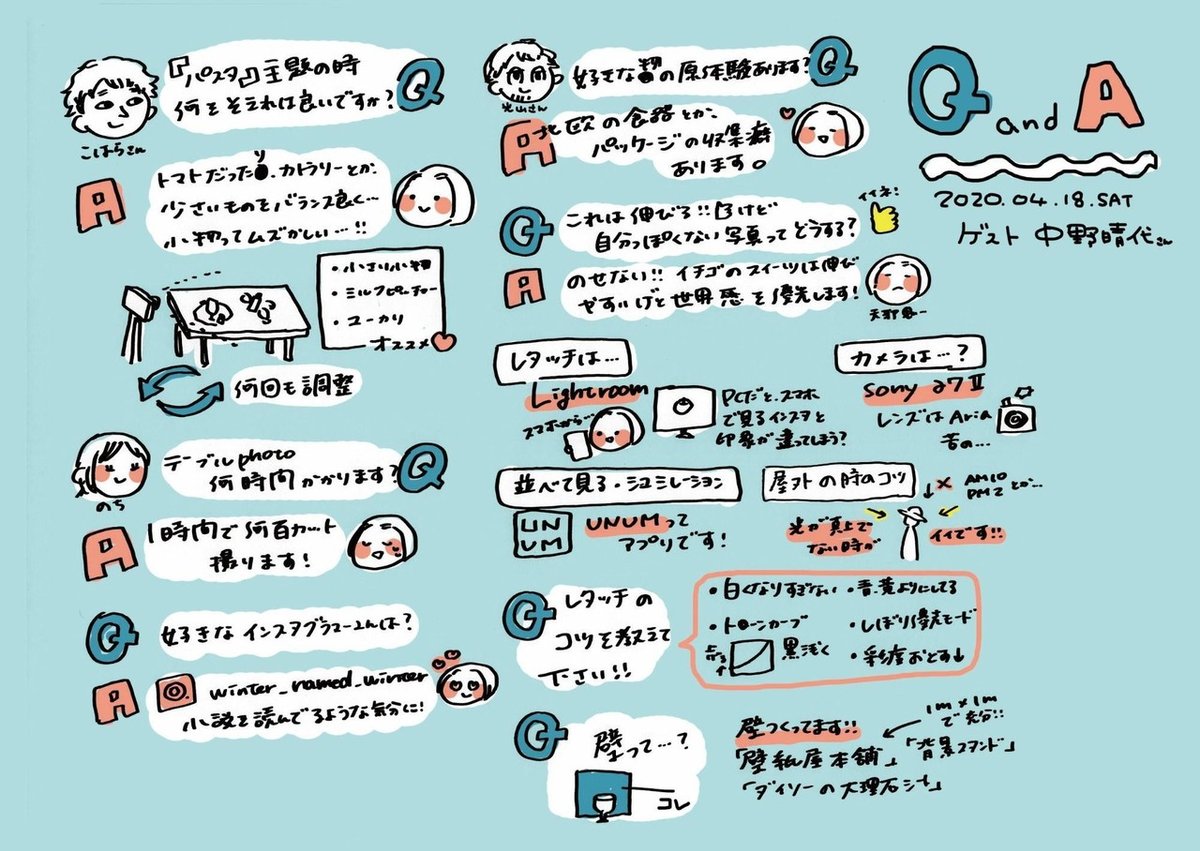 Q and A
2020.04.18.SAT
ゲスト 中野晴代さん
こはらさん
『パスタ』主題の時
何をそえれば良いですか?
Q
A
トマトだったり、カトラリーとか、
小さいものをバランス良く…
小物ってムズかしい…!!
・小さい小物
・ミルクピッチャー
・ユーカリ
オススメ
何回も調整
のち
テーブルphoto
何時間かかります?
Q
A
1時間で何百カット
撮ります!
Q
好きなインスタグラマーさんは?
A
winter_named_winter
小説を読んでるような気分に!
光山さん
好きな物の原体験あります?
Q
A
北欧の食器とか、
パッケージの収集癖
あります。
Q
これは伸びる!!だけど
自分っぽくない写真ってどうする?
イイネ!
A
のせない!! イチゴのスイーツは伸び
やすいけど世界感を優先します!
レタッチは…
Lightroom
スマホから…
PCだと、スマホ
で見るインスタと
印象が違ってしまう?
カメラは…?
sony α7Ⅱ
レンズは Aria
昔の…
並べて見る・シュミレーション
UN
UM
UNUMって
アプリです!
屋外の時のコツ
× AM10
PM2 とか…
光が真上で
ない時が
イイです!!
Q
レタッチの
コツを教えて
下さい!!
・白くなりすぎない
・トーンカーブ
上げる
黒浅く
・青、黄よりにしてる
・しぼり優先モード
・彩度おとす↓
Q
壁って…?
コレ
壁つくってます!!
1m×1m
で充分!!
「壁紙屋本舗」「背景スタンド」
「ダイソーの大理石シート」